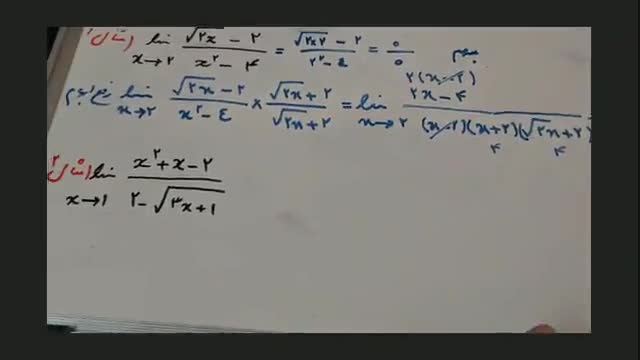 مثال ۱) lim x→۲ (√(۲x) − ۲)/(x^۲ − ۴) = (√(۲×۲) − ۲)/(۲^۲ − ٤) = ۰/۰ مبهم
رفع ابهام lim x→۲ (√(۲x) − ۲)/(x^۲ − ٤) × (√(۲x) + ۲)/(√(۲x) + ۲) = lim x→۲ ۲(x−۲) ۲x − ۴/((x−۲)(x+۲)(√(۲x)+۲)) ۴ ۴
مثال ۲) lim x→۱ (x^۲ + x − ۲)/(۲ − √(۳x + ۱))